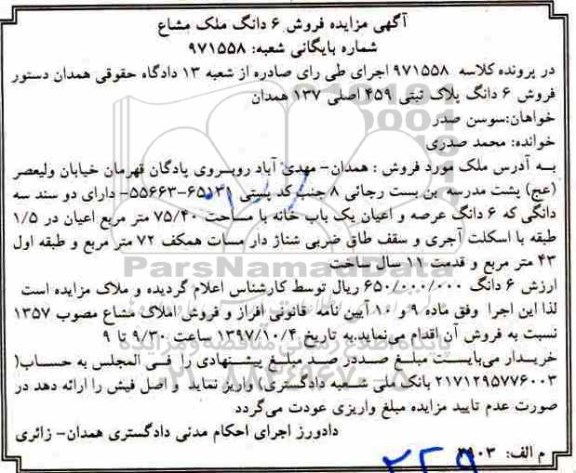 آگهی مزایده فروش ۶ دانگ ملک مشاع
شماره بایگانی شعبه: ۹۷۱۵۵۸
در پرونده کلاسه ۹۷۱۵۵۸ اجرای طی رای صادره از شعبه ۱۳ دادگاه حقوقی همدان دستور
فروش ۶ دانگ پلاک ثبتی ۴۵۹ اصلی ۱۳۷ همدان
خواهان:سوسن صدر
خوانده: محمد صدری
به آدرس ملک مورد فروش : همدان- مهدی آباد روبروی پادگان قهرمان خیابان ولیعصر
(عج) پشت مدرسه بن بست رجائی ۸ جنب کد پستی ۶۵۱۳۱-۵۵۶۶۳- دارای دو سند سه
دانگی که ۶ دانگ عرصه و اعیان یک باب خانه با مساحت ۷۵/۴۰ متر مربع اعیان در ۱/۵
طبقه با اسکلت آجری و سقف طاق ضربی شناژ دار مسات همکف ۷۲ متر مربع و طبقه اول
۴۳ متر مربع و قدمت ۱۱ سال ساخت
ارزش ۶ دانگ ۶۵۰/۰۰۰/۰۰۰ ریال توسط کارشناس اعلام گردیده و ملاک مزایده است
لذا این اجرا وفق ماده ۹ و ۱۰ آیین نامه قانونی افراز و فروش املاک مشاع مصوب ۱۳۵۷
نسبت به فروش آن اقدام می‌نماید.به تاریخ ۱۳۹۷/۱۰/۴ ساعت ۹/۳۰ تا ۹
خریدار می‌بایست مبلغ صددر صد مبلغ پیشنهادی را فی المجلس به حساب(
۲۱۷۱۲۹۵۷۷۶۰۰۳ بانک ملی شعبه دادگستری) واریز نماید و اصل فیش را ارائه دهد در
صورت عدم تایید مزایده مبلغ واریزی عودت می‌گردد
دادورز اجرای احکام مدنی دادگستری همدان- زائری
م الف: ۳۹۰۳
ParsNamadData